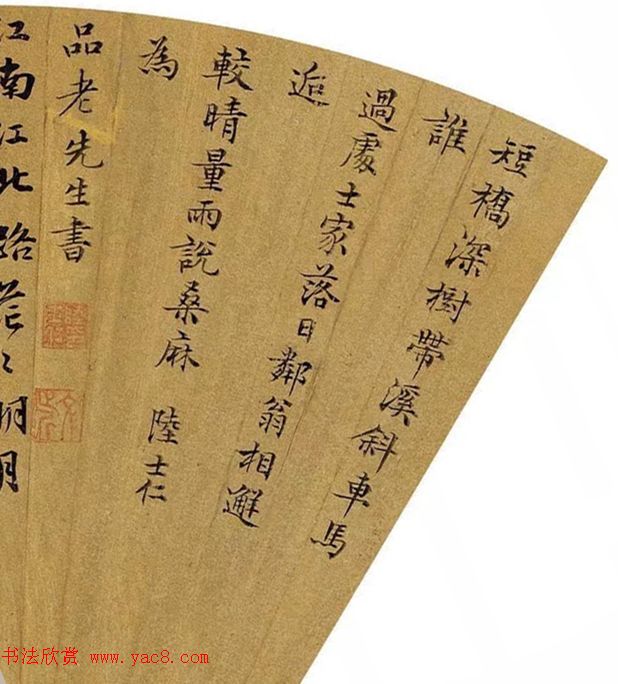 短橋深樹帶溪斜車馬
誰
過處士家落日鄰翁相邂
逅
較晴量雨說桑麻 陸士仁
為
品老先生書
江南江北路茫〻明月
书法欣赏 www.yac8.com